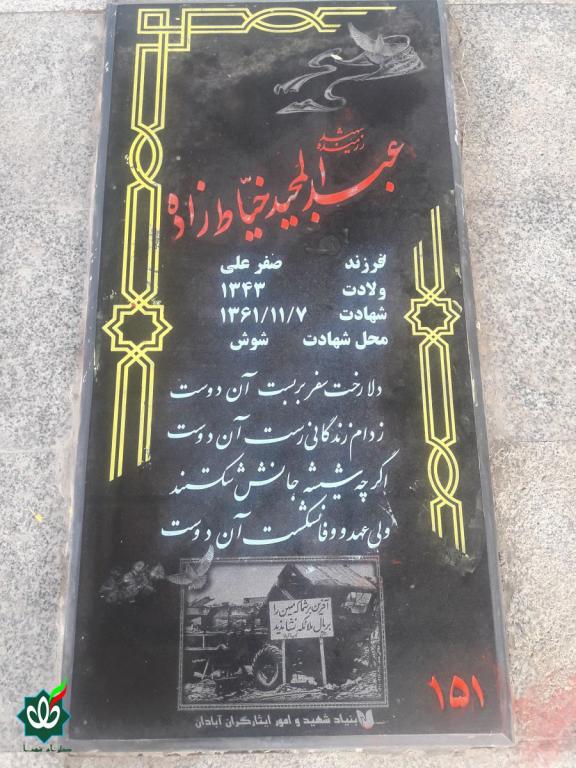 رزمنده شهید
عبدالمجید خیّاط زاده
فرزند صفر علی
ولادت ۱۳۴۳
شهادت ۱۳۶۱/۱۱/۷
محل شهادت شوش
دلا رخت سفر بربست آن دوست
ز دام زندگانی رست آن دوست
اگر چه شیشه جانش شکستند
ولی عهد و وفا نشکست آن دوست
آفرین بر شما که میهن را
بر بال ملائکه نشاندید
۱۵۱
بنیاد شهید و امور ایثارگران آبادان